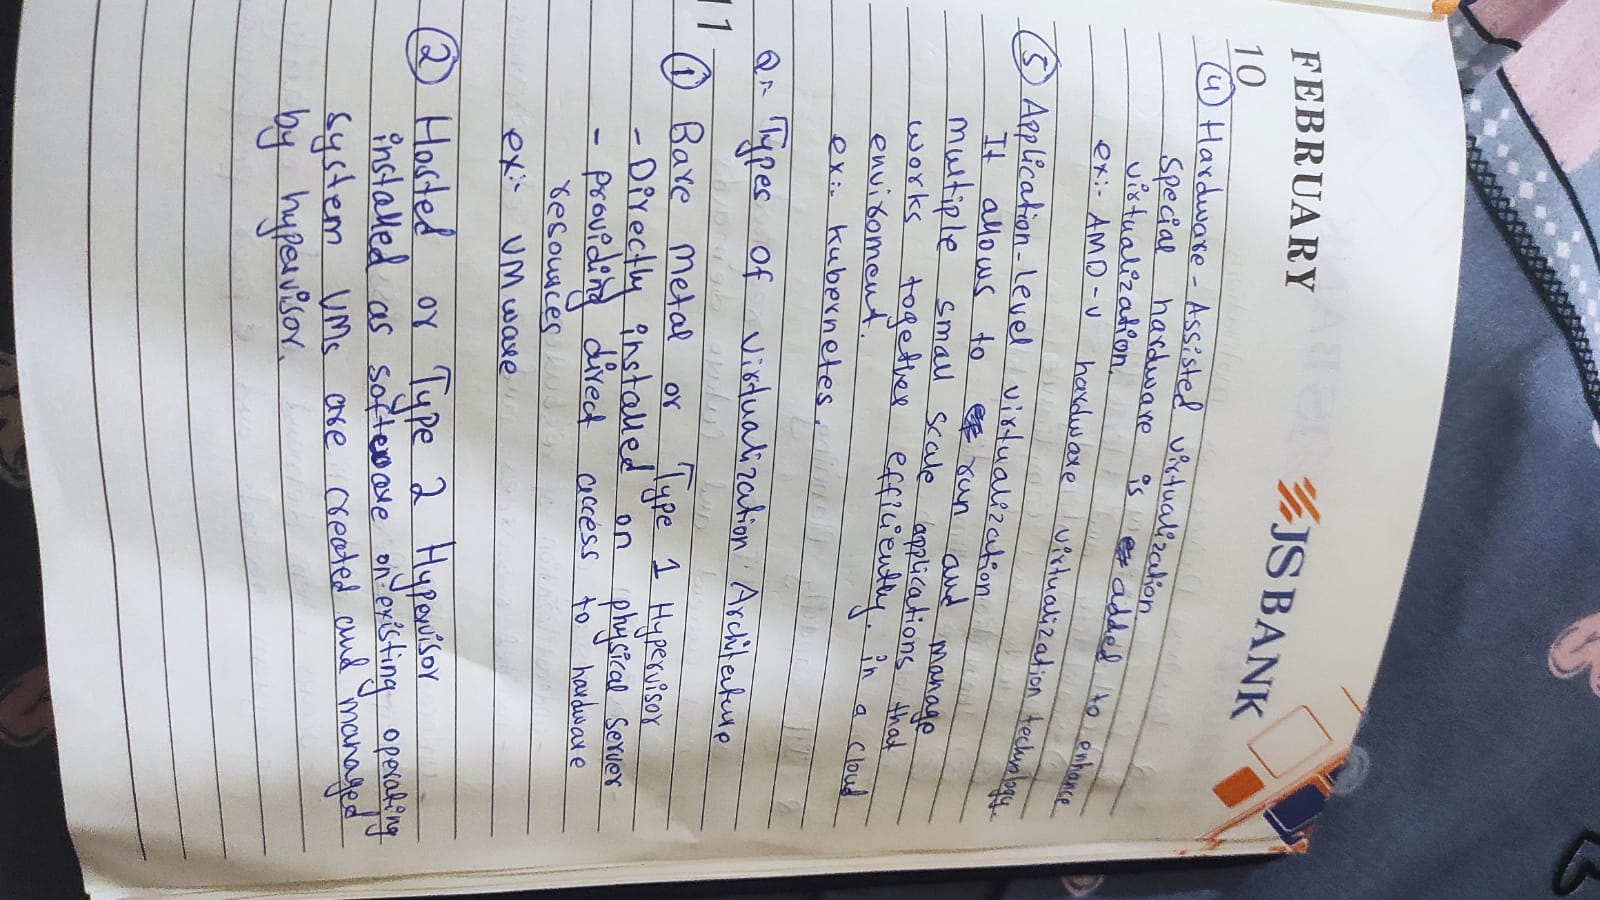 FEBRUARY
JS BANK
10
4 Hardware - Assisted virtualization
Special hardware is added to enhance
virtualization.
ex:- AMD-V hardware virtualization technology.
5 Application-Level virtualization
It allows to run and manage
multiple small scale applications that
works together efficiently. in a cloud
enviroment.
ex:- Kubernetes.
Q:- Types of virtualization Architecture
11
1 Bare Metal or Type 1 Hypervisor
- Directly installed on physical server
- providing direct access to hardware
resources
ex:- VM ware
2 Hosted or Type 2 Hypervisor
installed as software on existing operating
system VMs are created and managed
by hypervisor.